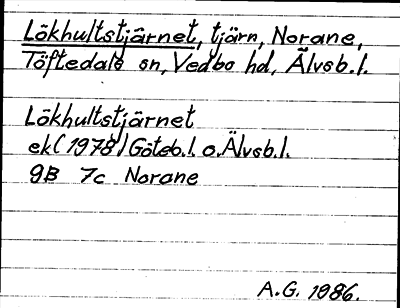 Lökhultstjärnet, tjärn, Norane,
Töftedals sn, Vedbo hd, Älvsb.l.
Lökhultstjärnet
ek (1978) Göteb.l. o. Älvsb.l.
9B 7c Norane
A.G. 1986.